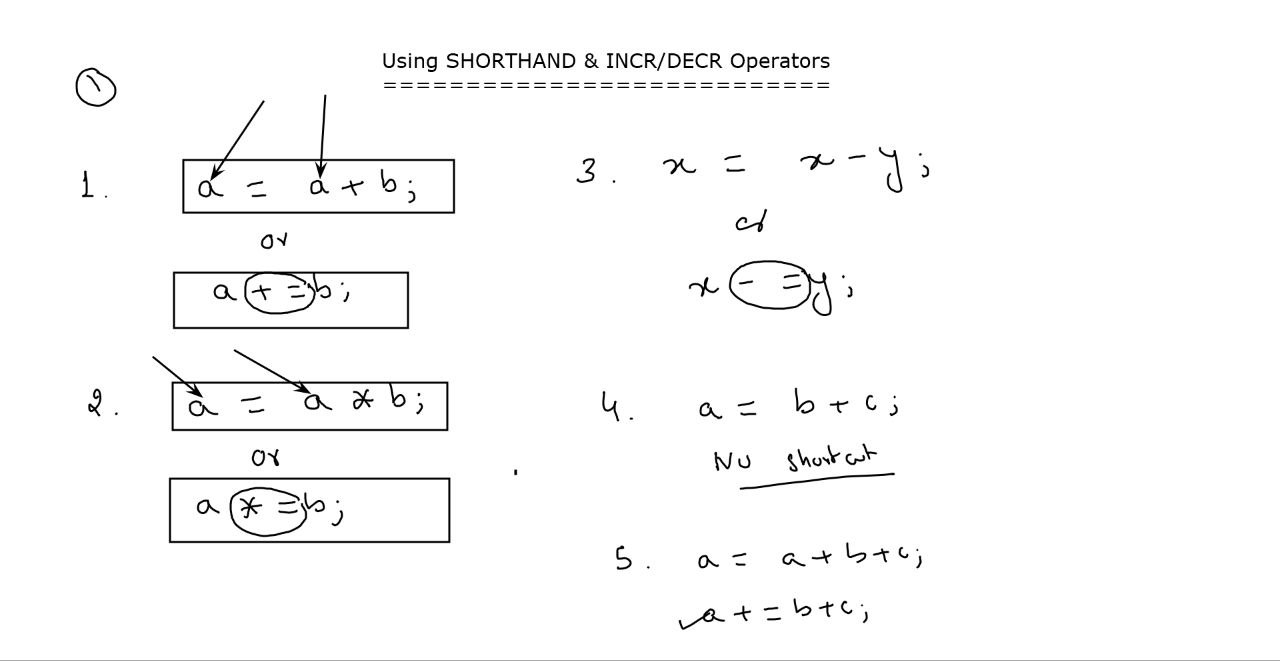 Using SHORTHAND & INCR/DECR Operators
===========================
1
1. a = a + b;
or
a += b;
2. a = a * b;
or
a *= b;
3. x = x - y;
or
x -= y;
4. a = b + c;
No shortcut
5. a = a + b + c;
a += b + c;